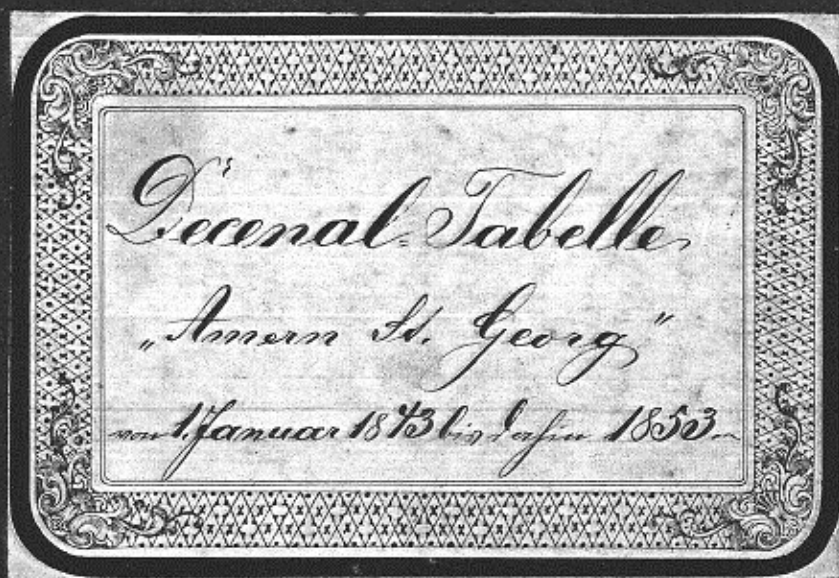 Decenal-Tabelle
„Amern St. Georg"
von 1. Januar 1843 bis dahin 1853.